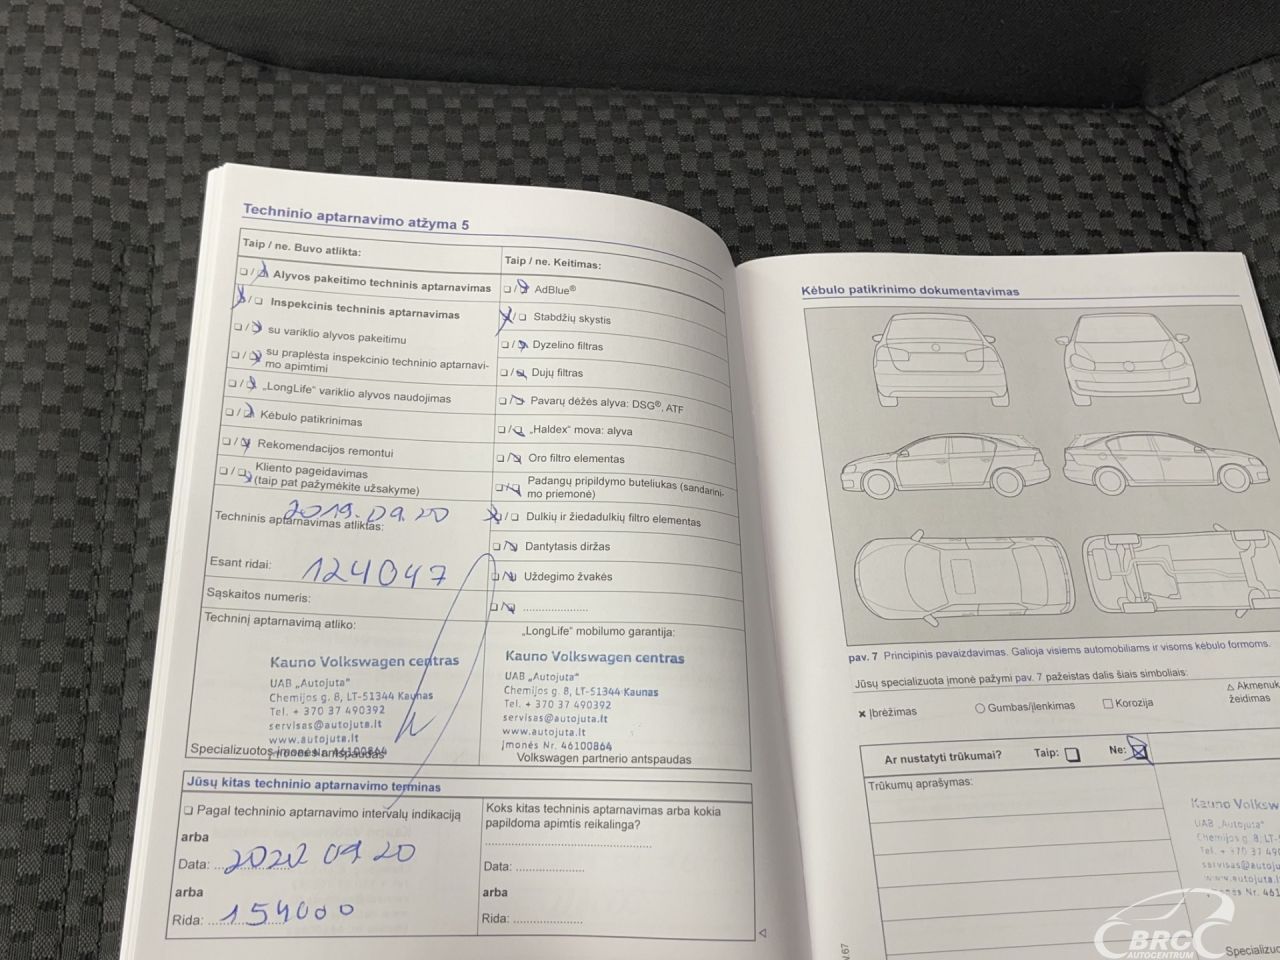 Techninio aptarnavimo atžyma 5
Taip / ne. Buvo atlikta:
Alyvos pakeitimo techninis aptarnavimas
Inspekcinis techninis aptarnavimas
su variklio alyvos pakeitimu
su praplėsta inspekcinio techninio aptarnavi-
mo apimtimi
„LongLife“ variklio alyvos naudojimas
Kėbulo patikrinimas
Rekomendacijos remontui
Kliento pageidavimas
(taip pat pažymėkite užsakyme)
2019.09.20
Techninis aptarnavimas atliktas:
Esant ridai: 124047
Sąskaitos numeris:
Techninį aptarnavimą atliko:
Kauno Volkswagen centras
UAB „Autojuta“
Chemijos g. 8, LT-51344 Kaunas
Tel. + 370 37 490392
servisas@autojuta.lt
www.autojuta.lt
Įmonės Nr. 46100864
Specializuotos įmonės antspaudas
Taip / ne. Keitimas:
AdBlue®
Stabdžių skystis
Dyzelino filtras
Dujų filtras
Pavarų dėžės alyva: DSG®, ATF
„Haldex“ mova: alyva
Oro filtro elementas
Padangų pripildymo buteliukas (sandarini-
mo priemonė)
Dulkių ir žiedadulkių filtro elementas
Dantytasis diržas
Uždegimo žvakės
„LongLife“ mobilumo garantija:
Kauno Volkswagen centras
UAB „Autojuta“
Chemijos g. 8, LT-51344 Kaunas
Tel. + 370 37 490392
servisas@autojuta.lt
www.autojuta.lt
Įmonės Nr. 46100864
Volkswagen partnerio antspaudas
Jūsų kitas techninio aptarnavimo terminas
Pagal techninio aptarnavimo intervalų indikaciją
arba
Data: 2020 09 20
arba
Rida: 154000
Koks kitas techninis aptarnavimas arba kokia
papildoma apimtis reikalinga?
Data:
arba
Rida:
Kėbulo patikrinimo dokumentavimas
pav. 7 Principinis pavaizdavimas. Galioja visiems automobiliams ir visoms kėbulo formoms.
Jūsų specializuota įmonė pažymi pav. 7 pažeistas dalis šiais simboliais:
Įbrėžimas
Gumbas/įlenkimas
Korozija
Akmenuk
žeidimas
Ar nustatyti trūkumai? Taip: Ne:
Trūkumų aprašymas:
Kauno Volksw
UAB „Autojuta“
Chemijos g. 8, LT-51
Tel. + 370 37 490
servisas@autojuta.l
www.autojuta.lt
Įmonės Nr. 461
Specializuo
BRC
AUTOCENTRUM